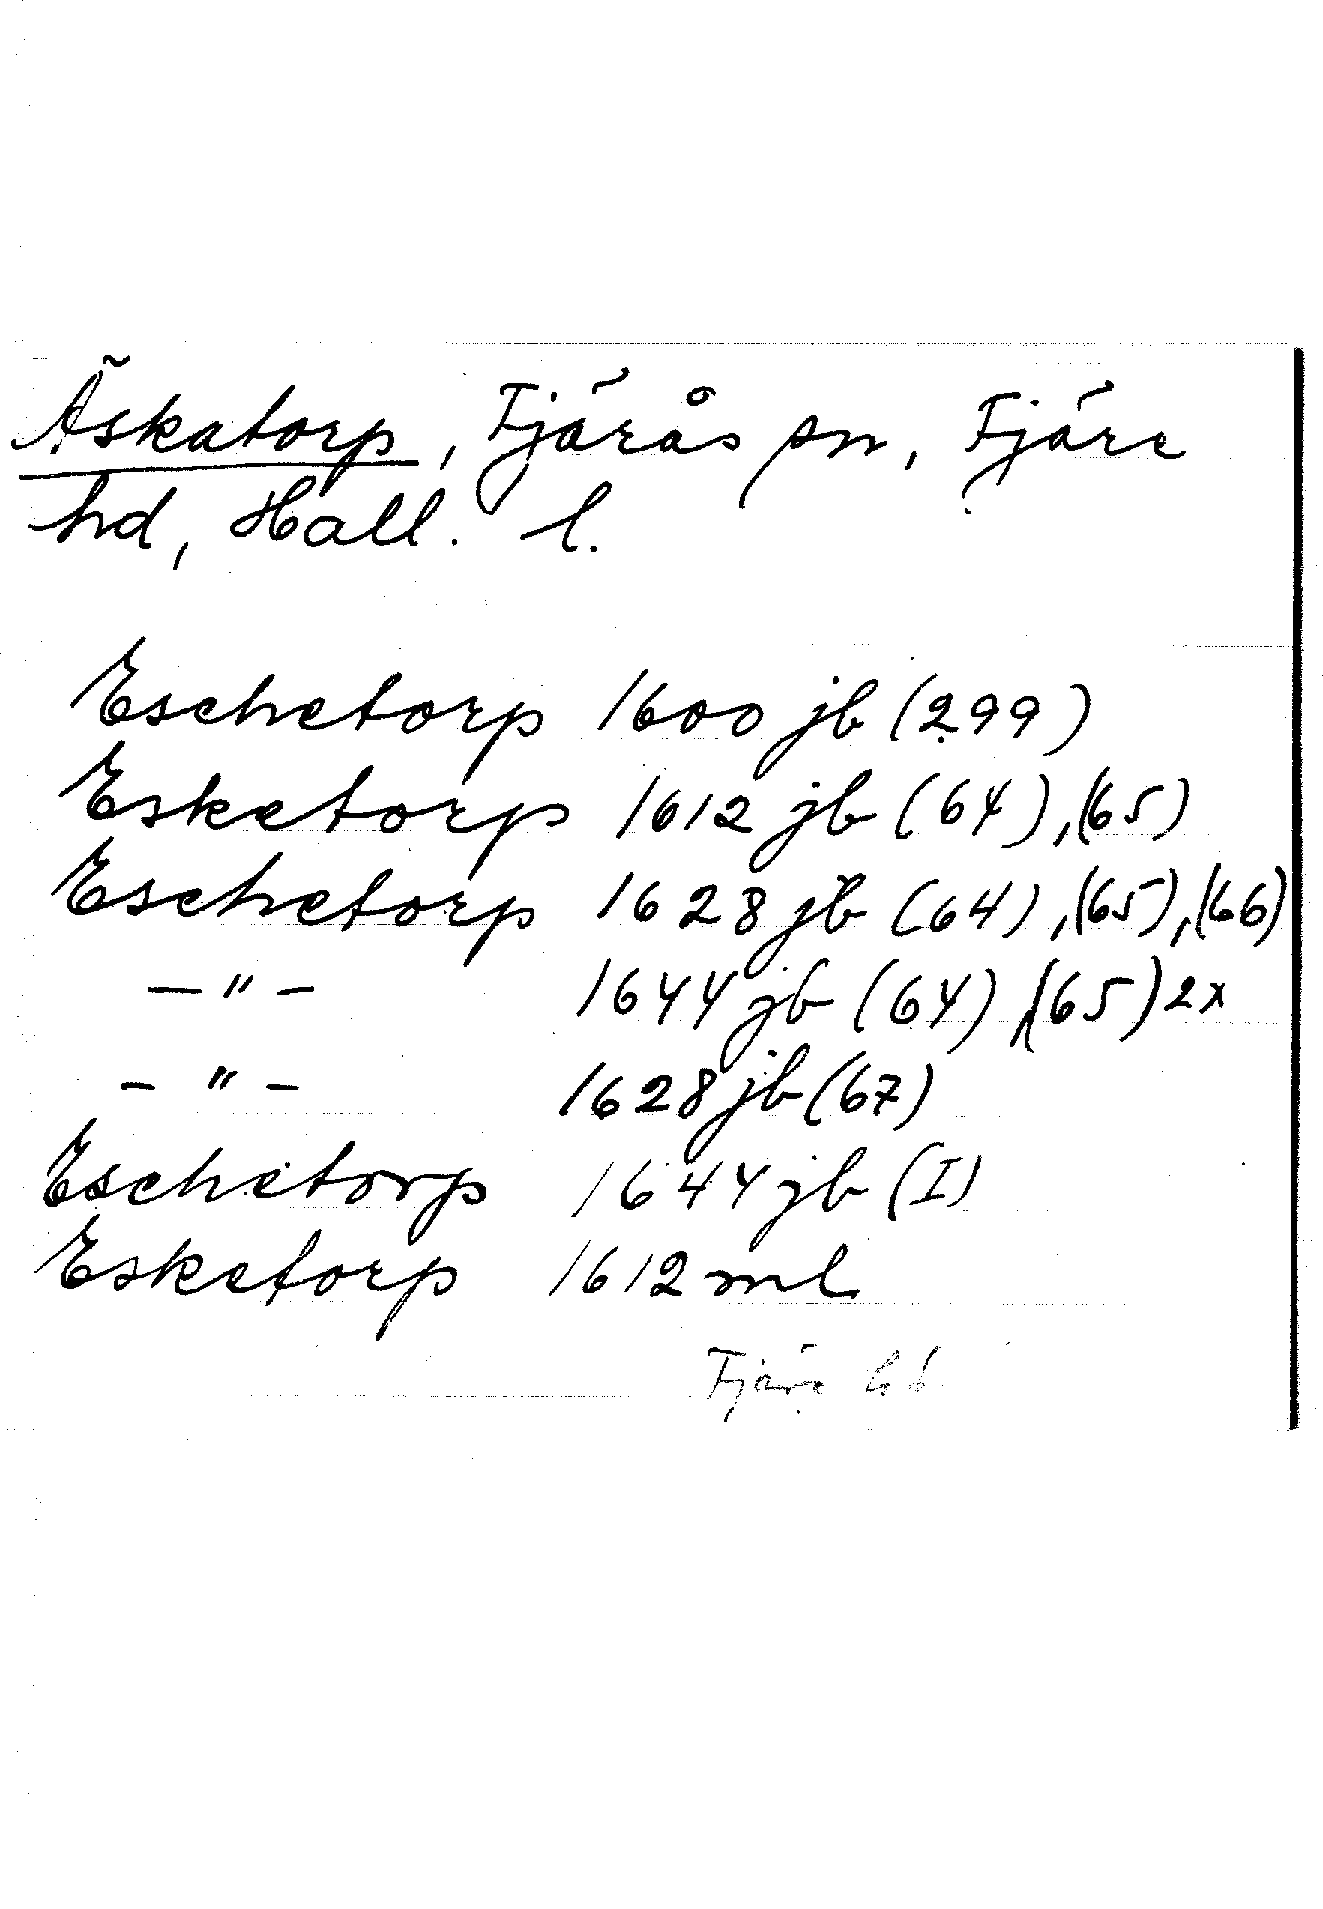 Äskatorp, Fjärås sn, Fjäre
hd, Hall. l.
Eschetorp 1600 jb (299)
Esketorp 1612 jb (64), (65)
Eschetorp 1628 jb (64), (65), (66)
— " — 1644 jb (64), (65) 2x
— " — 1628 jb (67)
Eschetorp 1644 jb (I)
Esketorp 1612 ml
Fjäre